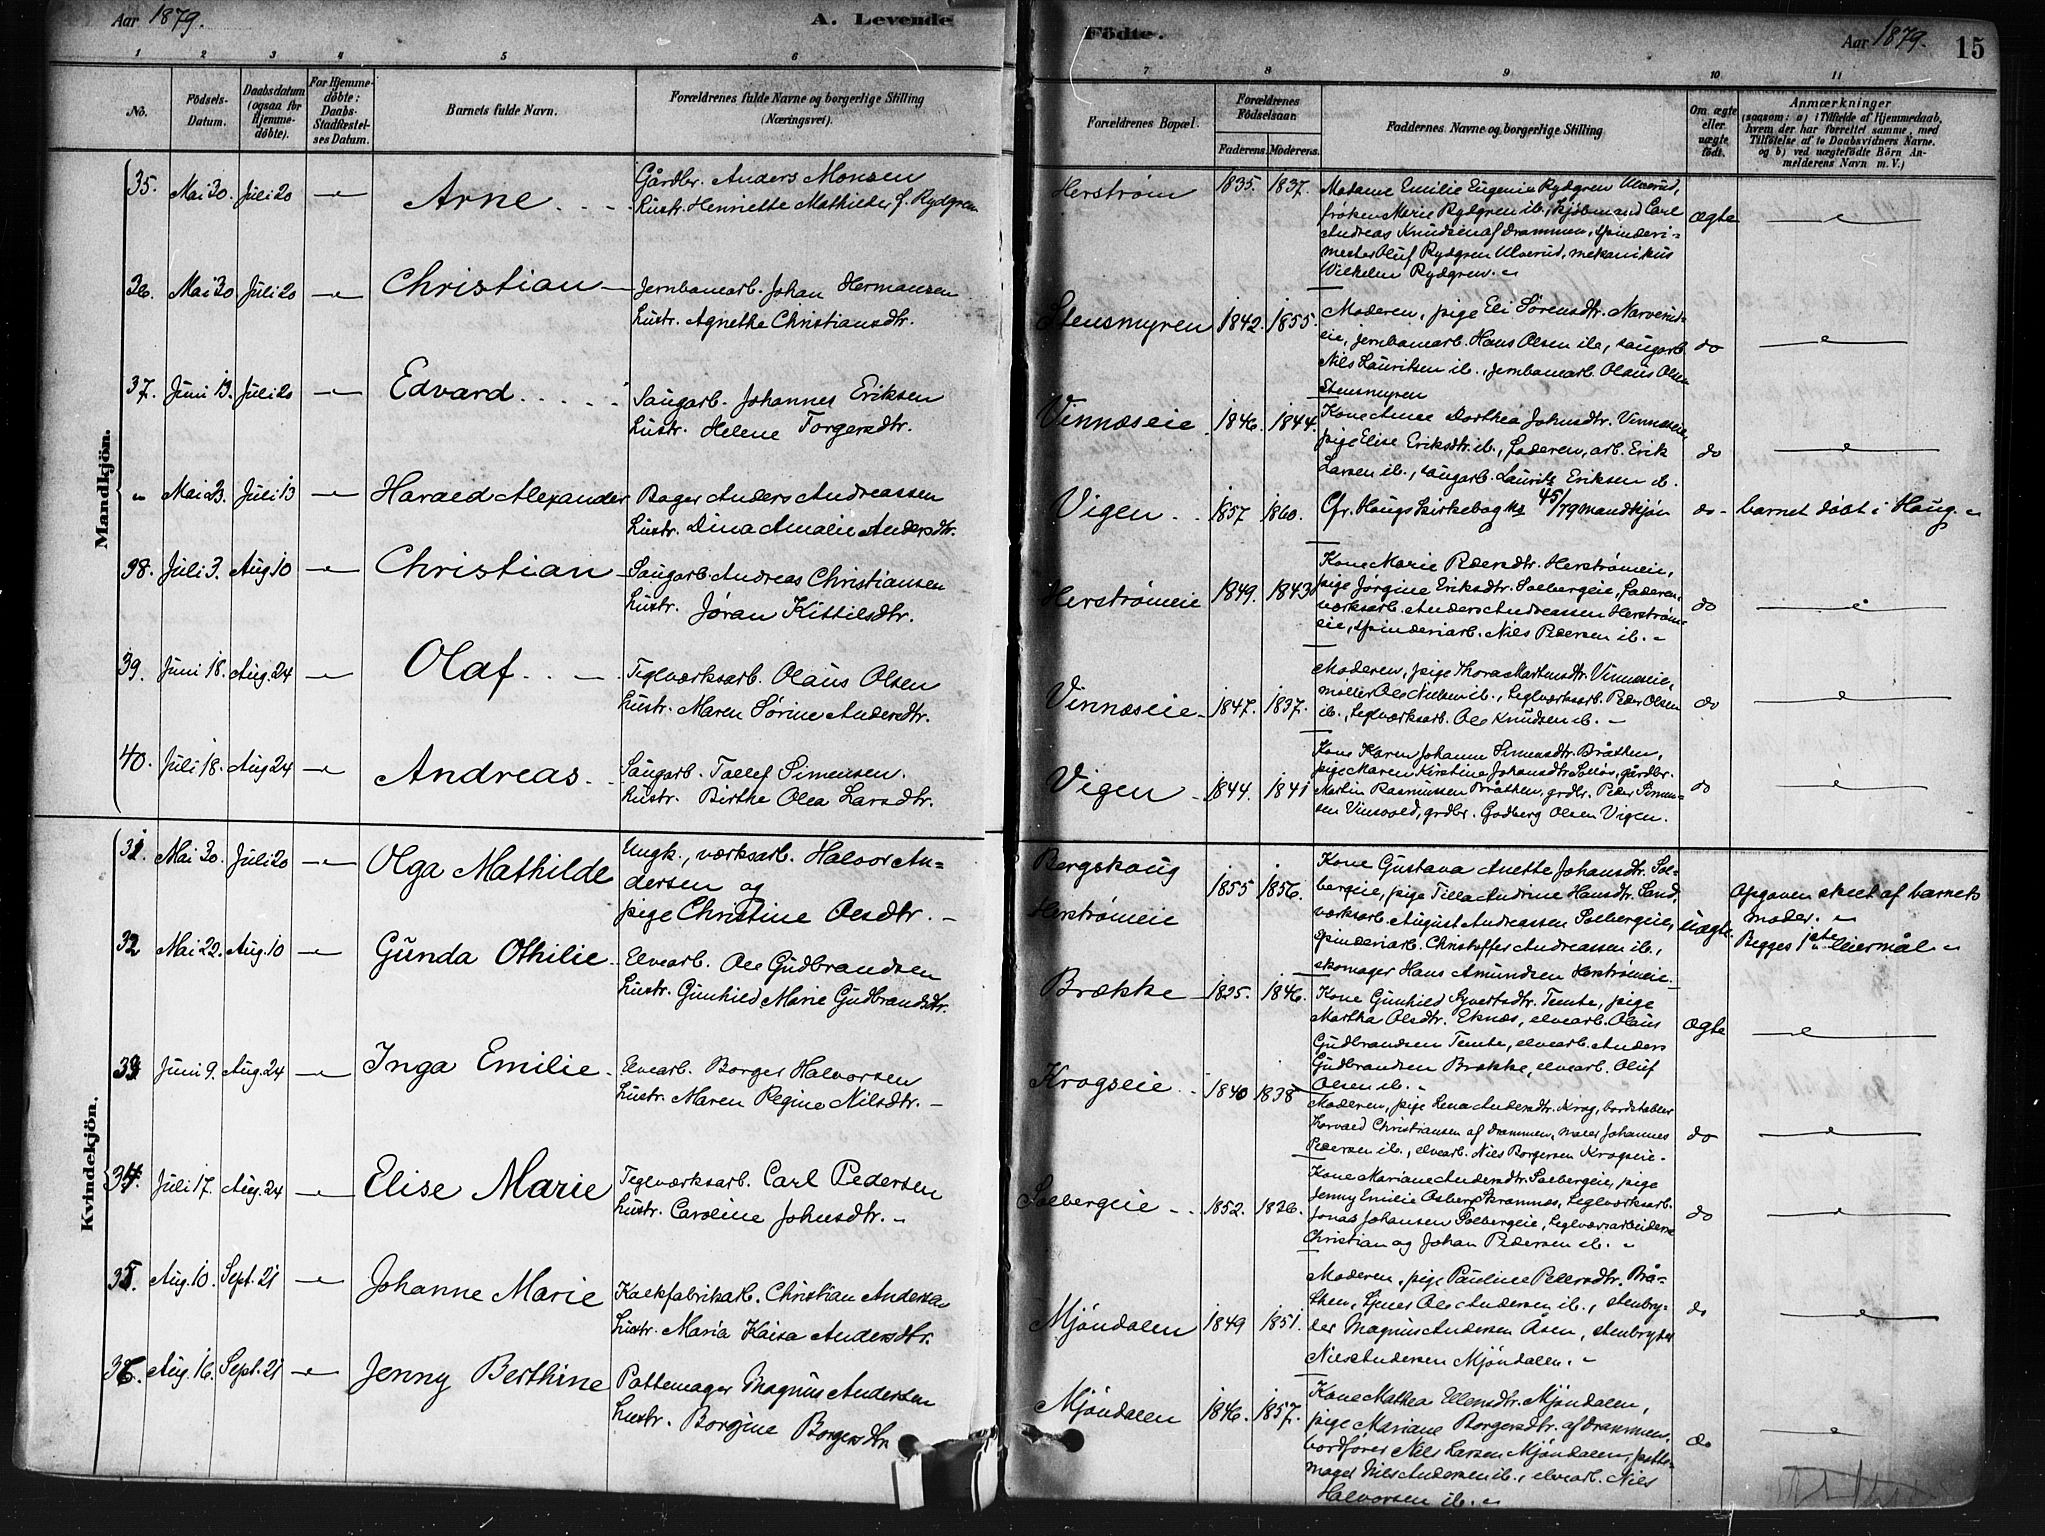 Aar 1879.
A. Levende
Födte.
Aar 1879.
15
1 2 3 4 5 6 7 8 9 10 11
No.
Födsels-Datum.
Daabsdatum (ogsaa for Hjemmedöbte).
For Hjemmedöbte: Daabs-Stadfæstelses Datum.
Barnets fulde Navn.
Forældrenes fulde Navne og borgerlige Stilling (Næringsvei).
Forældrenes Bopæl.
Forældrenes Födselsaar.
Faderens. Moderens.
Faddernes Navne og borgerlige Stilling
Om ægte eller uægte födt.
Anmærkninger
(saasom: a) i Tilfælde af Hjemmedaab, hvem der har forrettet samme, med Tilföielse af to Daabsvidners Navne, og b) ved uægtefödte Börn Anmelderens Navn m. V.)
Mandkjön.
35. Mai 30. Juli 20 Arne Gårdbr. Anders Monsen
Hustr. Henriette Mathilde f. Rydgren
Herström 1835. 1837.
Madame Emilie Eugenie Rydgren Ulverud,
frøken Marie Rydgren ib., kjöbmand Carl
Andreas Knudsen af Drammen, spinderi-
mester Oluf Rydgren Ulverud, mekanikus
Wilhelm Rydgren.
ægte
36. Mai 30 Juli 20 Christian Jernbanearb. Johan Hermansen
Hustr. Agnethe Christiansdtr.
Stensmyren 1842. 1855.
Moderen, pige Eli Sörensdtr. Narverud-
eie, jernbanearb. Hans Olsen ib., saugarb.
Nils Lauritsen ib., jernbanearb. Olaus Olsen
Stensmyren
do
37. Juni 13. Juli 20 Edvard Saugarb. Johannes Eriksen
Hustr. Helene Torgersdtr.
Vinnæseie 1846. 1844.
Kone Anne Dorthea Johnsdtr. Vinnæseie,
pige Elise Eriksdtr. ib., Faderen, arb. Erik
Larsen ib., saugarb. Lauritz Eriksen ib.
do
" Mai 23. Juli 13 Harald Alexander Bager Anders Andreassen
Hustr. Dina Amalie Andersdtr.
Vigen 1857 1860.
Cfr. Haugs kirkebog No 45/79 mandkjön
do barnet döbt i Haug.
38. Juli 3. Aug. 10 Christian Saugarb. Andreas Christiansen
Hustr. Jöran Kittilsdtr.
Herströmeie 1849. 1843
Kone Marie Pedersdtr. Herströmeie,
pige Jörgine Eriksdtr. Solbergeie, Faderen,
værksarb. Anders Andreassen Herström-
eie, spinderiarb. Nils Pedersen ib.
do
39. Juni 18. Aug. 24 Olaf Teglværksarb. Olaus Olsen
Hustr. Maren Sörine Andersdtr.
Vinnæseie 1847. 1837.
Moderen, pige Thora Martensdtr. Vinnæseie,
möller Ole Nielsen ib., teglværksarb. Peder Olsen
ib., teglværksarb. Ole Knudsen ib.
do
40. Juli 18. Aug. 24 Andreas Saugarb. Tollef Simensen.
Hustr. Birthe Olea Larsdtr.
Vigen 1844. 1841
Kone Karen Johanne Simensdtr. Bråthen,
pige Maren Kirstine Johansdtr. gårdbr.
Martin Rasmussen Bråthen, grdbr. Peder Simen-
sen Vinsvold, grdbr. Gudberg Olsen Vigen.
do
Kvindekjön.
31. Mai 30. Juli 20 Olga Mathilde Ungk., værksarb. Halvor An-
dersen og
pige Christine Olsdtr.
Bergskaug
Herströmeie
1855 1856.
Kone Gustava Anette Johansdtr. Sol-
bergeie, pige Tilla Andrine Hansdtr. Sand,
værksarb. August Andreassen Solbergeie,
spinderiarb. Christoffer Andreassen ib.,
skomager Hans Amundsen Herströmeie.
uægte
Opgaven skeet af barnets
moder.
Begges 1ste leiermål
32 Mai 22. Aug. 10 Gunda Othilie Elvearb. Ole Gudbrandsen
Hustr. Gunhild Marie Gudbrandsdtr.
Brække 1825. 1846.
Kone Gunhild Syvertsdtr. Temte, pige
Martha Olsdtr. Eknæs, elvearb. Olaus
Gudbrandsen Temte, elvearb. Anders
Gudbrandsen Brække, elvearb. Oluf
Olsen ib.
ægte
33 Juni 9. Aug. 24 Inga Emilie Elvearb. Borger Halvorsen
Hustr. Maren Regine Nilsdtr.
Krogseie 1840 1838
Moderen, pige Lena Andersdtr. Krog, bordstabler
Harvald Christiansen af Drammen, maler Johannes
Pedersen ib., elvearb. Nils Borgersen Krogseie.
do
34. Juli 17. Aug. 24 Elise Marie Teglværksarb. Carl Pedersen
Hustr. Caroline Johnsdtr.
Solbergeie 1852. 1826.
Kone Mariane Andersdtr. Solbergeie, pige
Jenny Emilie Osberg Stramnæs, teglværksarb.
Jonas Johansen Solbergeie, teglværksarbeiderne
Christian og Johan Pedersen ib.
do
35. Aug. 10. Sept. 21 Johanne Marie Kalkfabriksarb. Christian Andersen
Hustr. Maria Kaisa Andersdtr.
Mjöndalen 1849 1851.
Moderen, pige Pauline Pedersdtr. Brå-
then, tjener Ole Andersen ib., stenbry-
der Magnus Andersen Åsen, stenbryder
Nils Andersen Mjöndalen.
do
36. Aug. 16. Sept. 21 Jenny Berthine Pottemager Magnus Andersen
Hustr. Borgine Borgersdtr.
Mjöndalen 1846. 1857.
Kone Mathea Ellensdtr. Mjöndalen,
pige Mariane Borgersdtr. af Drammen,
bordförer Nils Larsen Mjöndalen, potte-
mager Nils Andersen ib., elvearb. Nils
Halvorsen ib.
do